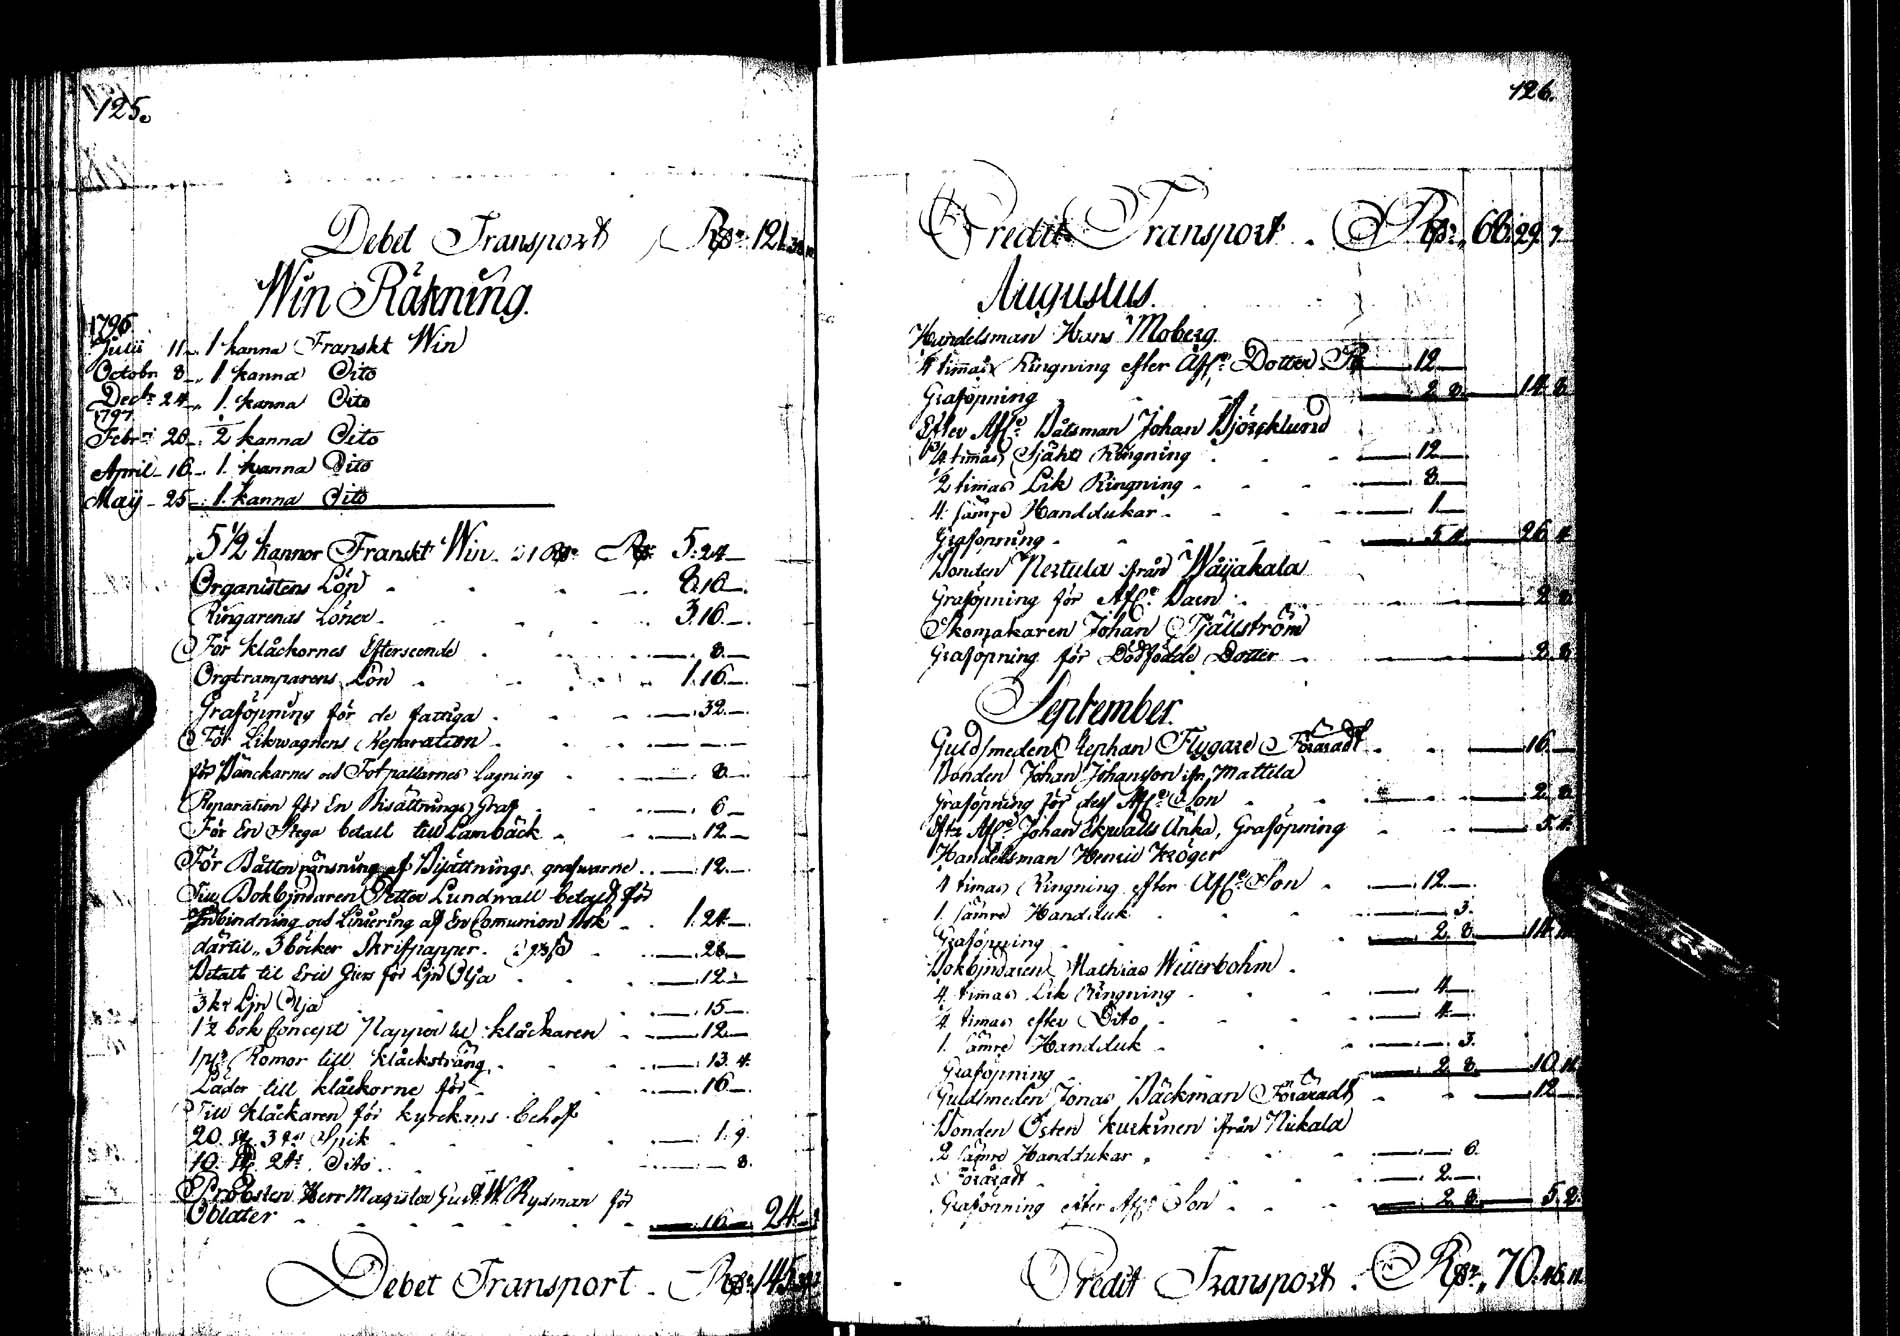 125.
Debet Transport Rdr 121.
Win Räkning.
1796
Julii 11 1 kanna Franskt Win
Octobr 8 1 kanna Dito
Decbr 24 1 kanna Dito
1797
Febri 28 ½ kanna Dito
April 16 1 kanna Dito
Maij 25 1 kanna Dito
5 1/2 kannor Franskt Win 5:24
Organistens Lön 8.16
Ringarenas Löner 3.16
För klåckornes Efterseende 8
Orgtramparens Lön 1.16
Graföpning för de fattiga 32
För Likwagnens Reparation
för Bänckarnes och Fotpallarnes lagning 8
Reparation för En Bisättnings Graf 6
För En Stega betalt till Lambäck 12
För Båttenränsning af Bisättnings grafwarne 12
Till Bokbindaren Petter Lundwall betalt för
Inbindning och Liniering af En Comunion bok 1.24
därtil 3 böcker Skrifpapper 28
Betalt til Eric för Lin Olja 12
3 kr Lin Olja 15
1½ bok Concept Papper til klåckaren 12
Romor till klåcksträng 13.4
Läder till klåckorne för 16
Till klåckaren för kyrckans behof
20 st. 3 Spik 1.9
10 st. 2 Dito 8
Probsten Herr Magister Gust. W. Rydman för
Oblater 16 24
Debet Transport Rdr 145
126.
Credit Transport Rdr 66.29.7
Augustus.
Handelsman Hans Moberg
timas Ringning efter Afl. Dotter 12
Graföpning 2 8 14 8
Efter Afl. Båtsman Johan Björcklund
timas Själa Ringning 12
1/2 timas Lik Ringning 8
4 sämre Handdukar 1
Graföpning 5 4 26 4
Bonden Pertula från Wäijakala
Graföpning för Afl. Barn 2 8
Skomakaren Johan Tjällström
Graföpning för Dödfödde Dotter 2 8
September.
Guldsmeden Stephan Flygare Föräradt 16
Bonden Johan Johansson fr. Mattila
Graföpning för dess Afl. Son 2 8
Eftr Afl. Johan Ekwalls Änka, Graföpning 5 4
Handelsman Henric Kröger
timas Ringning efter Afl. Son 12
1 sämre Handduk 3
Graföpning 2 8 14 11
Bokbindaren Mathias Wetterbohm
timas Lik Ringning 4
timas efter Dito 4
1 sämre Handduk 3
Graföpning 2 8 10 11
Guldsmeden Jonas Bäckman Föräradt 12
Bonden Östen Kurkinen från Nikala
2 sämre Handdukar 6
Föräradt 2
Graföpning efter Afl. Son 2 8 5 2
Credit Transport Rdr 70.46.11